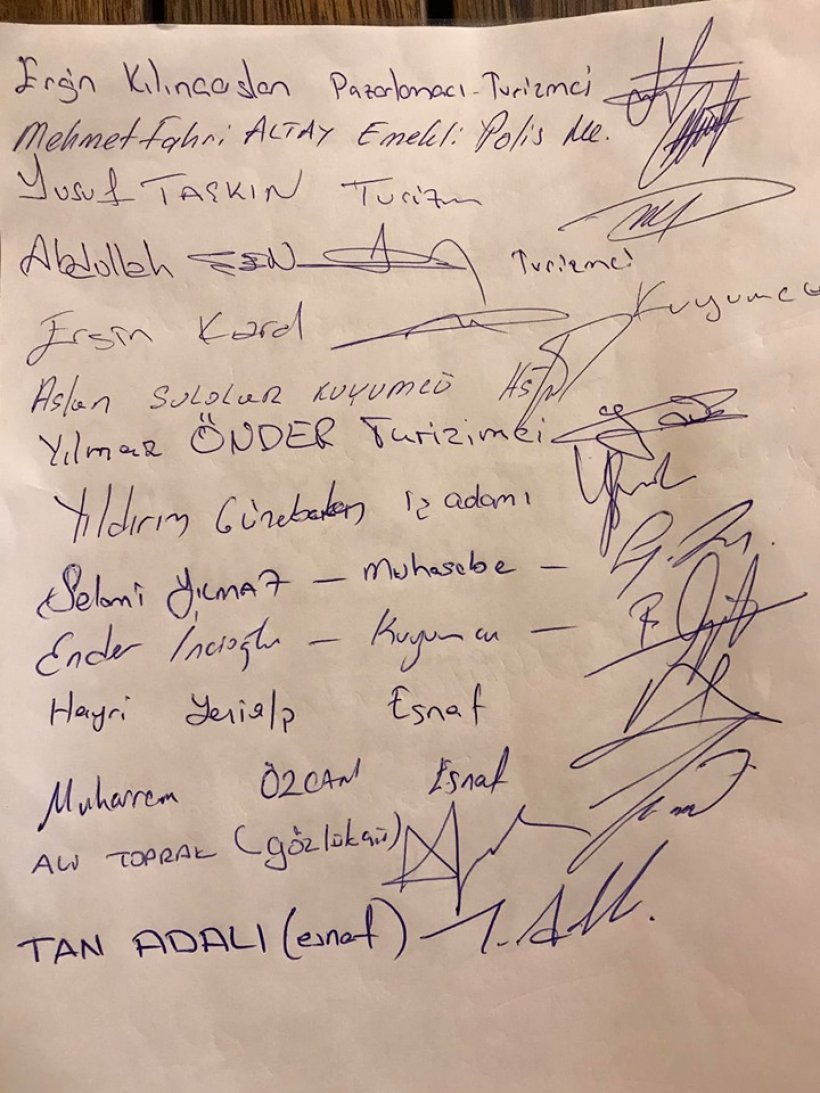 Ergin Kılıncaslan Pazarlamacı-Turizmci
Mehmet Fahri ALTAY Emekli Polis Me.
Yusuf TAŞKIN Turizm
Abdullah ŞEN Turizmci
Ersin Karal Kuyumcu
Aslan SULOLAR KUYUMCU
Yılmaz ÖNDER Turizimci
Yıldırım Günebakan iş adamı
Selami YILMAZ - Muhasebe -
Ender İncioğlu - Kuyumcu -
Hayri Yenialp Esnaf
Muharrem ÖZCAN Esnaf
ALİ TOPRAK (gözlükçü)
TAN ADALI (esnaf)